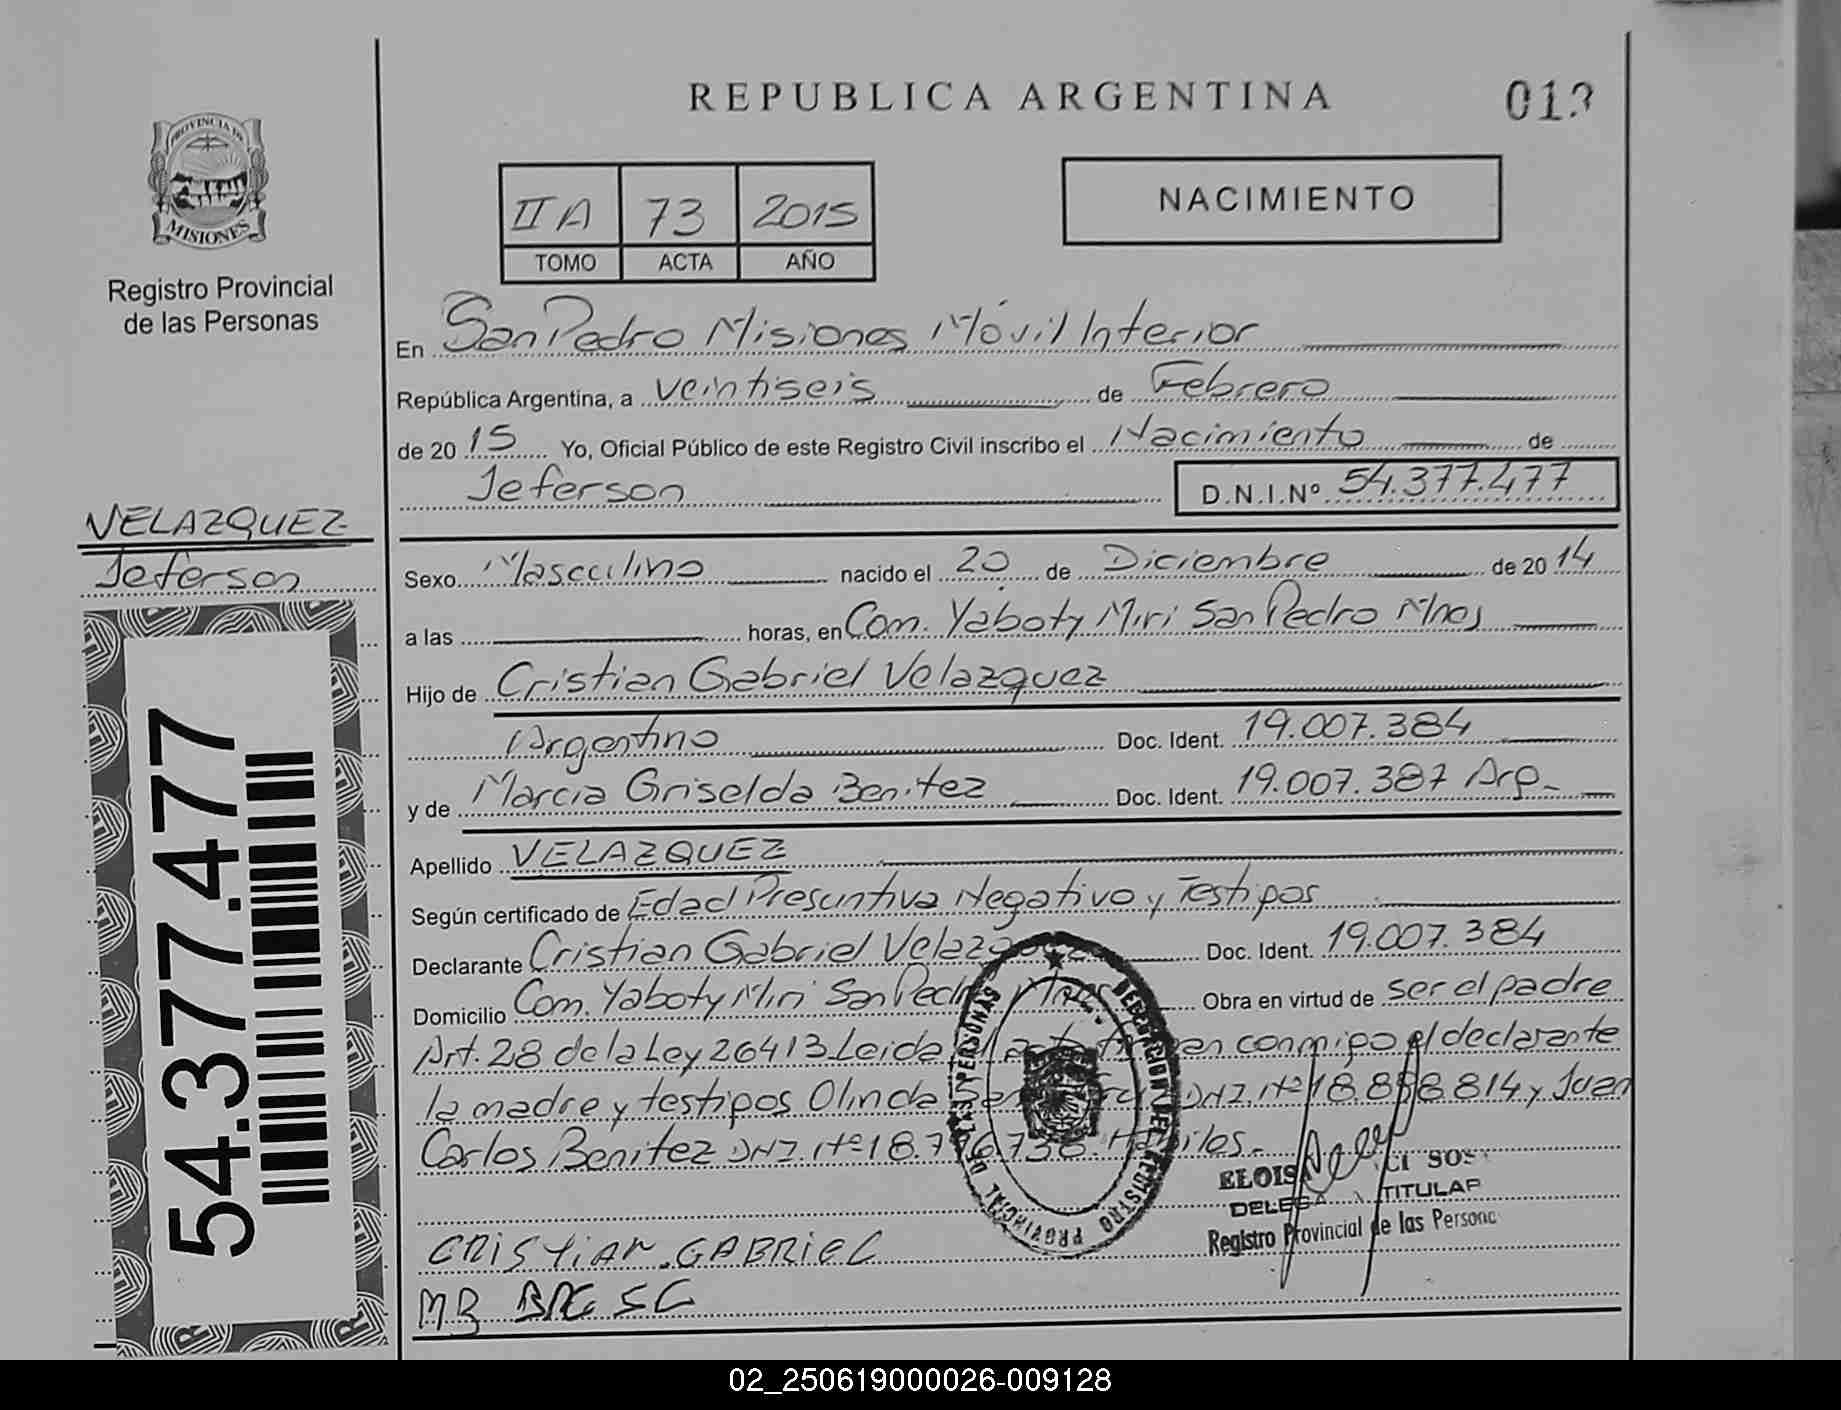 REPUBLICA ARGENTINA
013
PROVINCIA DE
MISIONES
Registro Provincial
de las Personas
II A 73 2015
TOMO ACTA AÑO
NACIMIENTO
En San Pedro Misiones Móvil Interior
República Argentina, a veintiseis de Febrero
de 2015 Yo, Oficial Público de este Registro Civil inscribo el Nacimiento de
Jeferson D.N.I.Nº 54.377.477
VELAZQUEZ
Jeferson
54.377.477
Sexo Masculino nacido el 20 de Diciembre de 2014
a las horas, en Com. Yaboty Miri San Pedro Mnes
Hijo de Cristian Gabriel Velazquez
Argentino Doc. Ident. 19.007.384
y de Marcia Griselda Benitez Doc. Ident. 19.007.387 Arg.
Apellido VELAZQUEZ
Según certificado de Edad Presuntiva Negativo y Testigos
Declarante Cristian Gabriel Velazquez Doc. Ident. 19.007.384
Domicilio Com. Yaboty Miri San Pedro Mnes Obra en virtud de ser el padre
Art. 28 de la Ley 26413 Leida el acta conmigo el declarante
la madre y testigos Olinda DNI. Nº 18.898.814 y Juan
Carlos Benitez DNI. Nº 18.796.738. Habiles.-
DELEGACION DEL REGISTRO PROVINCIAL DE LAS PERSONAS
DELEGADA TITULAR
Registro Provincial de las Personas
CRISTIAN GABRIEL
MB
02_250619000026-009128